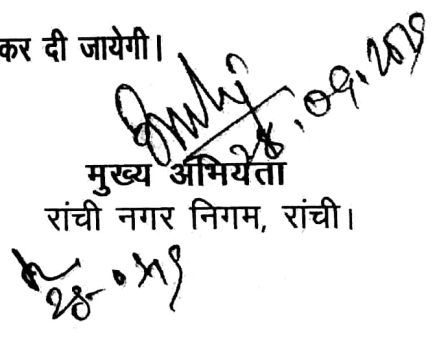 कर दी जायेगी।
28.09.2019
मुख्य अभियंता
रांची नगर निगम, रांची।